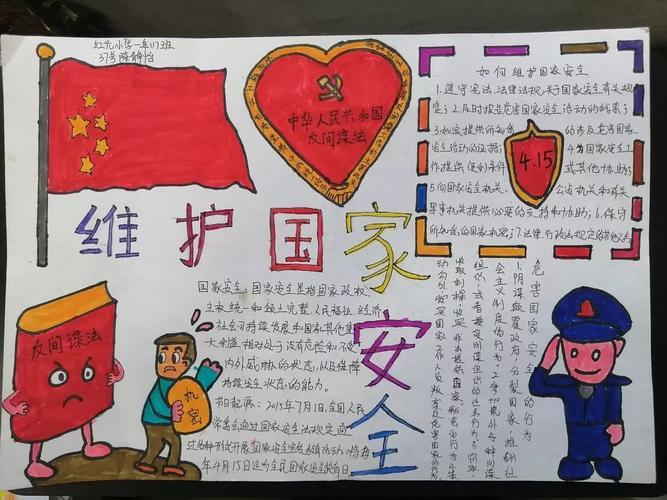 红花小学一年(7)班
37号陈静怡
中华人民共和国
反间谍法
如何维护国家安全
1.遵守宪法、法律法规关于国家安全有关规
定;2.及时报告危害国家安全活动的线索;
3.如实提供所知悉的涉及危害国家
安全活动的证据;4.为国家安全工
作提供便利条件或其他协助;
5.向国家安全机关、公安机关和有关
军事机关提供必要的支持和协助;6.保守
所知悉的国家秘密;7.法律、行政法规规定的其他义务
4.15
维护国家安全
反间谍法
机密
国家安全:国家安全是指国家政权、
主权、统一和领土完整、人民福祉、经济
社会可持续发展和国家其他重
大利益相对处于没有危险和不受
内外威胁的状态,以及保障
持续安全状态的能力。
节日起源:2015年7月1日,全国人民
代表大会
过多种形式开展国家安全宣传教育活动,将每
年4月15日定为全民国家安全教育日
危害国家安全的行为
1.阴谋颠覆政府,分裂国家,推翻社
会主义制度的行为;2.参加境外各种间谍
组织,或者接受间谍